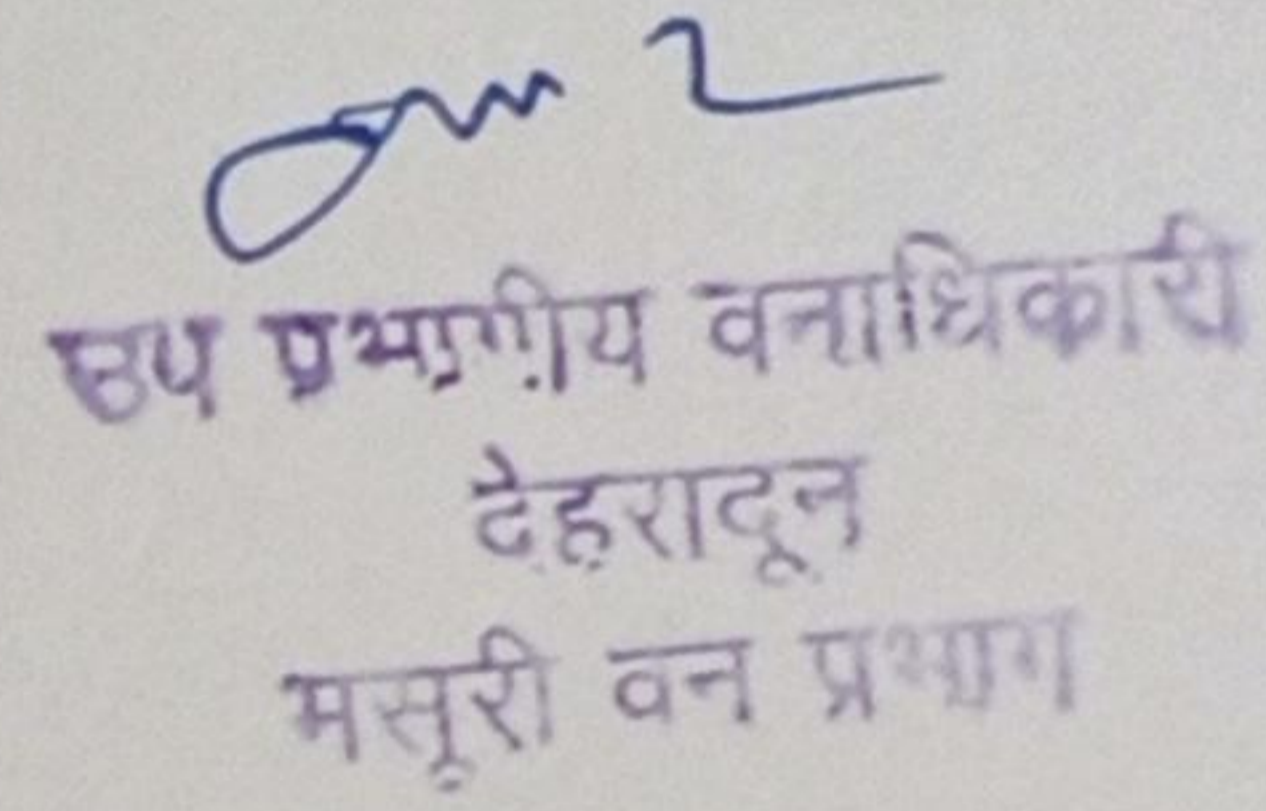 उप प्रभागीय वनाधिकारी
देहरादून
मसूरी वन प्रभाग